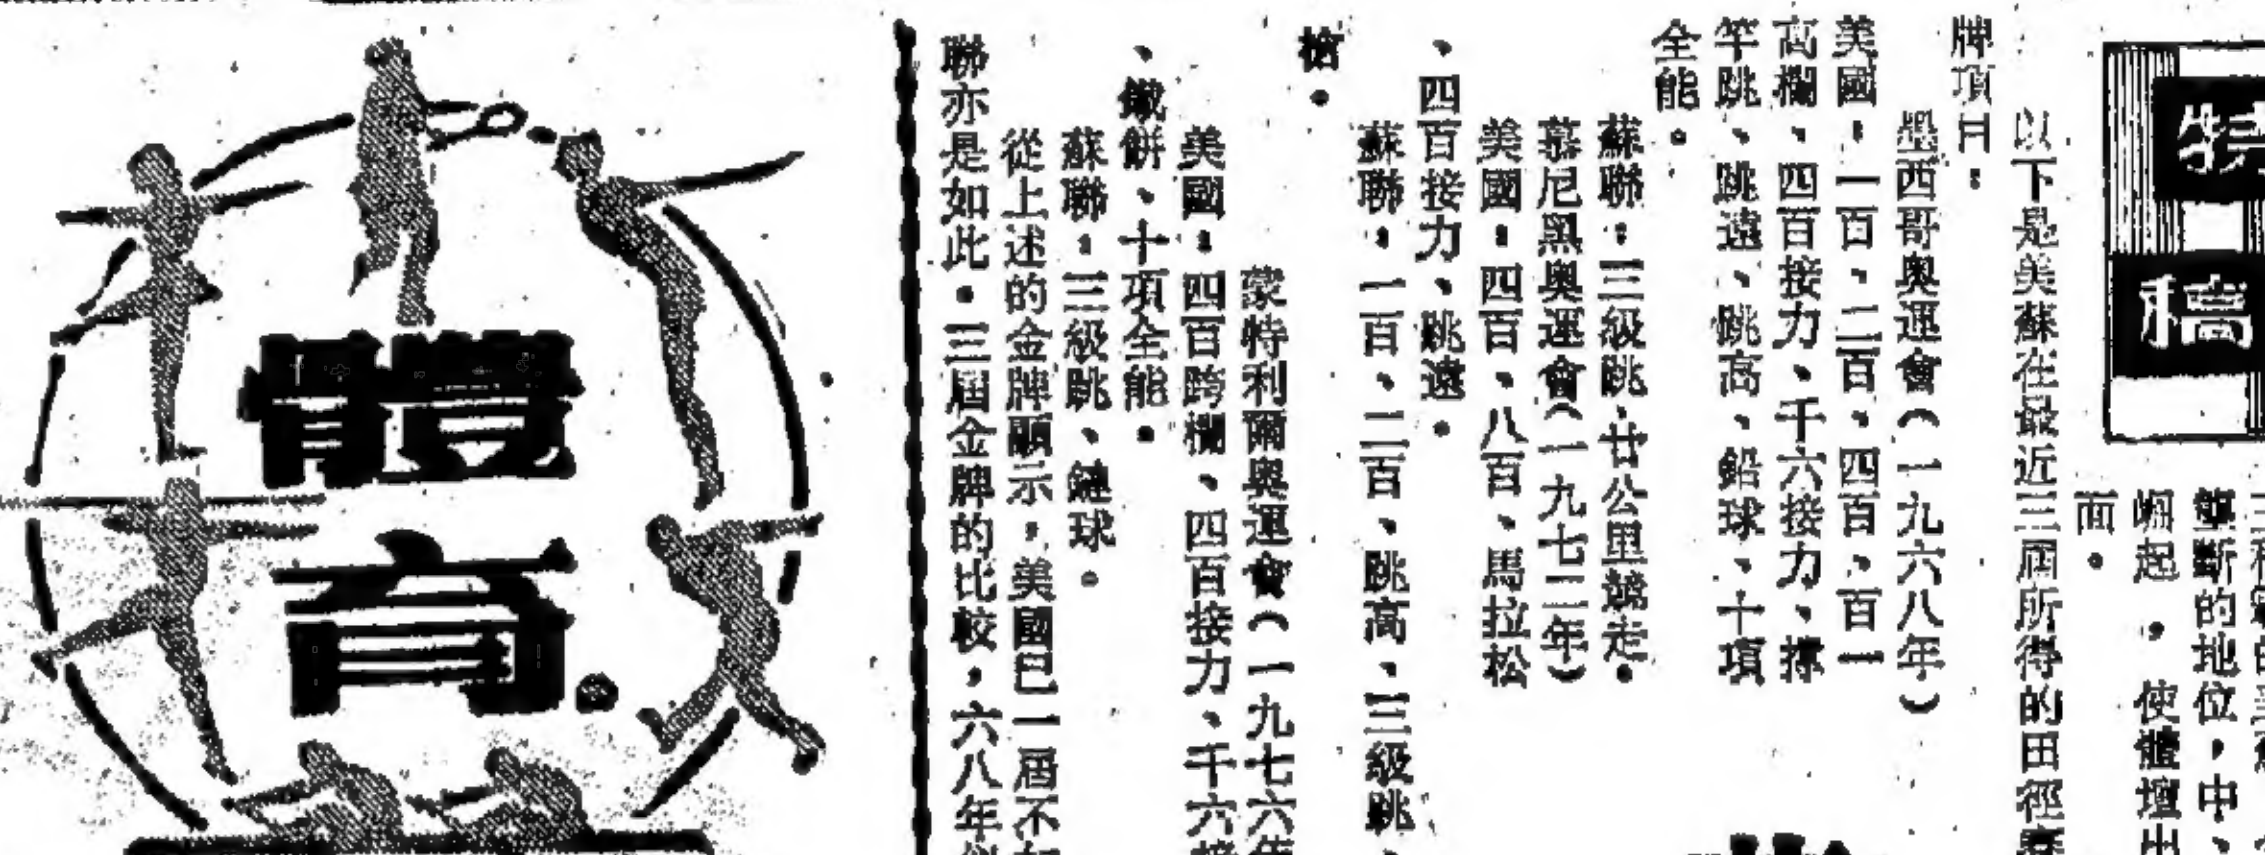 特
稿
壟斷的地位，中、
崛起，使體壇出
面。
以下是美蘇在最近三屆所得的田徑賽
牌項目：
墨西哥奧運會（一九六八年）
美國：一百、二百、四百、百一
高欄、四百接力、千六接力、撐
竿跳、跳遠、跳高、鉛球、十項
全能。
蘇聯：三級跳、廿公里競走。
慕尼黑奧運會（一九七二年）
美國：四百、八百、馬拉松
、四百接力、跳遠。
蘇聯：一百、二百、跳高、三級跳、
槍。
蒙特利爾奧運會（一九七六年
美國：四百跨欄、四百接力、千六接
、鐵餅、十項全能。
蘇聯：三級跳、鏈球。
從上述的金牌顯示，美國已一屆不如
聯亦是如此。三屆金牌的比較，六八年
體
育